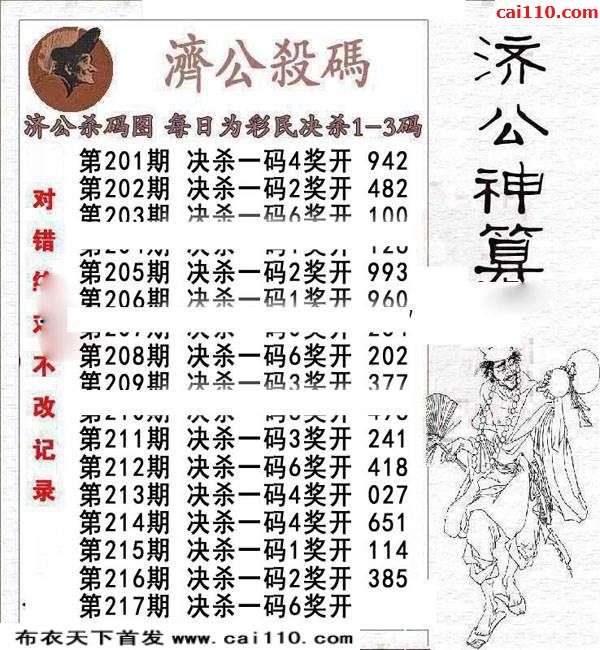 cai110.com
濟公殺碼
济公杀码图 每日为彩民决杀1-3码
第201期 决杀一码4奖开 942
第202期 决杀一码2奖开 482
第203期 决杀一码6奖开 100
第205期 决杀一码2奖开 993
第206期 决杀一码1奖开 960
第208期 决杀一码6奖开 202
第209期 决杀一码3奖开 377
第211期 决杀一码3奖开 241
第212期 决杀一码6奖开 418
第213期 决杀一码4奖开 027
第214期 决杀一码4奖开 651
第215期 决杀一码1奖开 114
第216期 决杀一码2奖开 385
第217期 决杀一码6奖开
对错
不改记录
济公神算
布衣天下首发 www.cai110.com